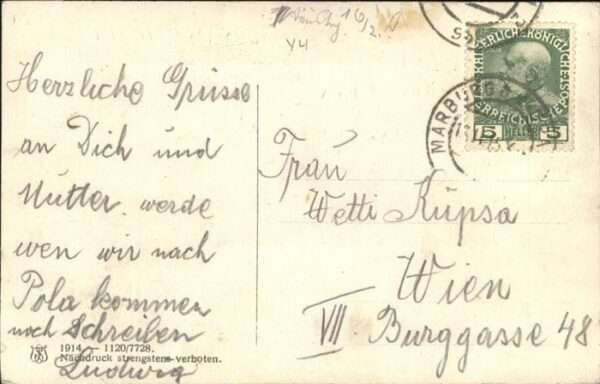 Herzliche Grüsse
an Dich und
Mutter. werde
wen wir nach
Pola kommen
noch Schreiben
Ludwig
1914 — 1120/7728.
Nachdruck strengstens verboten.
16/2
Y4
MARBURG
KAISERLICHE KÖNIGLICHE
ÖSTERREICHISCHE POST
5 HELLER 5
Frau
Wetti Kupsa
Wien
VII Burggasse 48